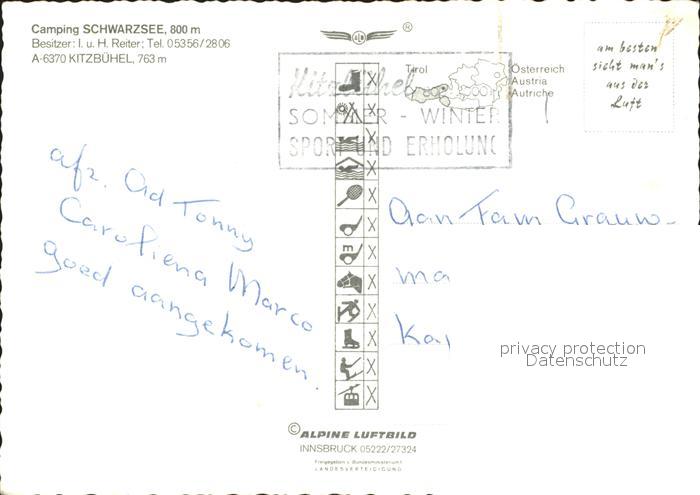 Camping SCHWARZSEE, 800 m
Besitzer: I. u. H. Reiter; Tel. 05356/2806
A-6370 KITZBÜHEL, 763 m
®
Tirol
Österreich
Austria
Autriche
am besten
sieht man's
aus der
Luft
Kitzbühel
SOMMER - WINTER
SPORT UND ERHOLUNG
afz. Ad Tonny
Caroliena Marco
goed aangekomen.
Aan Fam Grauw-
ma
Kaj
m
privacy protection
Datenschutz
© ALPINE LUFTBILD
INNSBRUCK 05222/27324
Freigegeben v. Bundesministerium f.
LANDESVERTEIDIGUNG